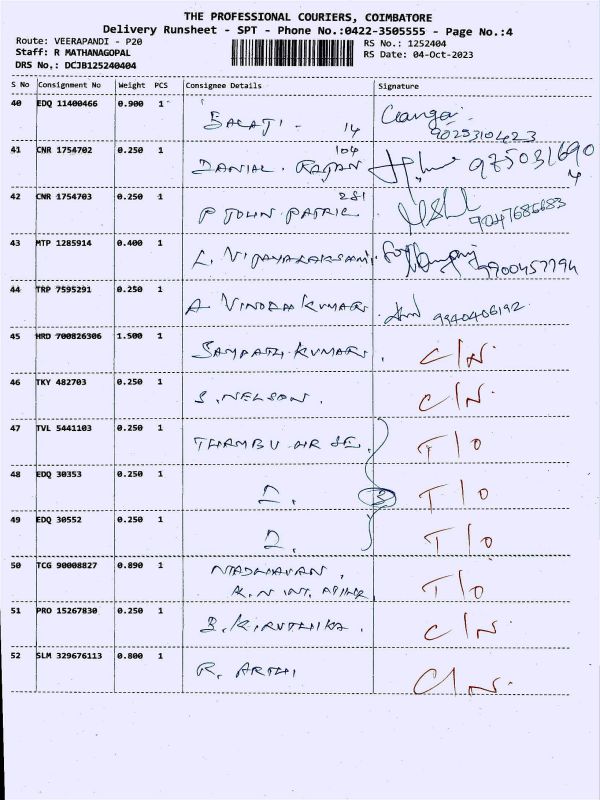 THE PROFESSIONAL COURIERS, COIMBATORE
Delivery Runsheet - SPT - Phone No.:0422-3505555 - Page No.:4
Route: VEERAPANDI - P20
RS No.: 1252404
Staff: R MATHANAGOPAL
RS Date: 04-Oct-2023
DRS No.: DCJB125240404
S No Consignment No Weight PCS Consignee Details Signature
40 EDQ 11400466 0.900 1 BALAJI - 14
9025310423
41 CNR 1754702 0.250 1 DANIAL RAJAN 104
42 CNR 1754703 0.250 1 P JOHN PATRIC 281
9047685683
43 MTP 1285914 0.400 1 L. VIJAYALAKSHMI.
9700457794
44 TRP 7595291 0.250 1 A VINODH KUMAR
9940406192.
45 HRD 700826306 1.500 1 SAMPATH KUMAR. C/N.
46 TKY 482703 0.250 1 S. NELSON. C/N.
47 TVL 5441103 0.250 1 THAMBU HR SE. T/O
48 EDQ 30353 0.250 1 2. 3 T/O
49 EDQ 30552 0.250 1 2. T/O
50 TCG 90008827 0.890 1 MADHAVAN. T/O
K.N INT.
51 PRO 15267830 0.250 1 B. KIRUTHIKA. C/N
52 SLM 329676113 0.800 1 R. ARTHI C/N.